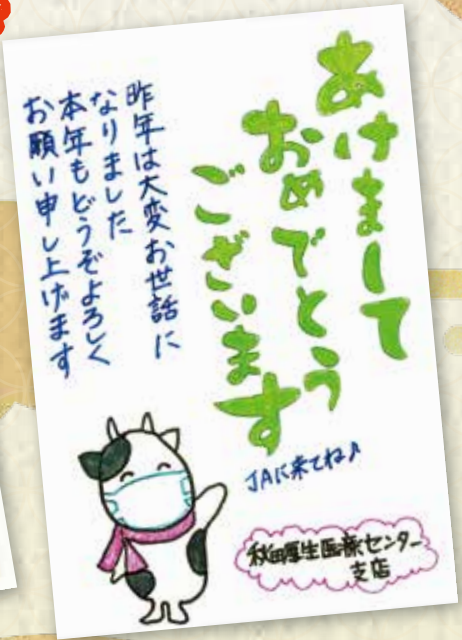 あけまして
おめでとう
ございます
昨年は大変お世話に
なりました
本年もどうぞよろしく
お願い申し上げます
JAに来てね♪
秋田厚生医療センター
支店